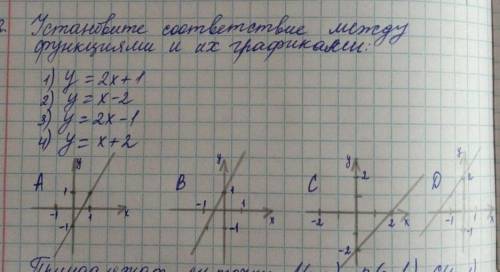 2. Установите соответствие между
функциями и их графиками:
1) y = 2x+1
2) y = x-2
3) y = 2x-1
4) y = x+2
A y 1 -1 1 x -1
B y 1 -1 1 x -1
C y 2 -2 2 x -2
D y 2 -2